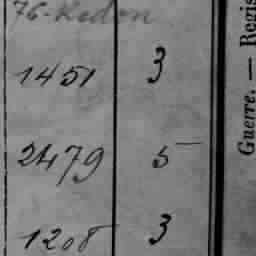 76-Redon
1451 3
2479 5
1208 3
Guerre. — Regis